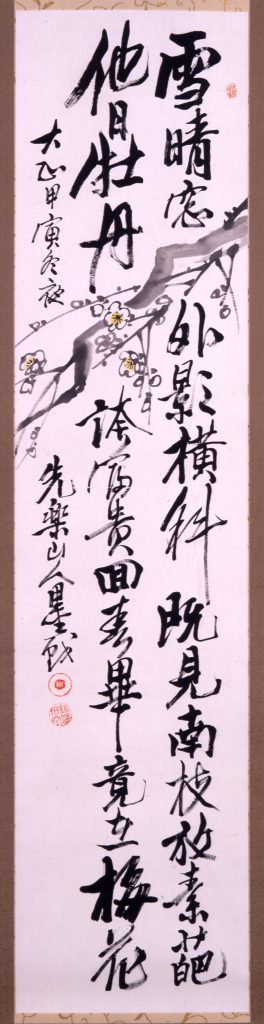 雪晴窓外影横斜既見南枝放素葩
他日牡丹誇富貴回春畢竟在梅花
大正甲寅冬夜
先楽山人墨戯